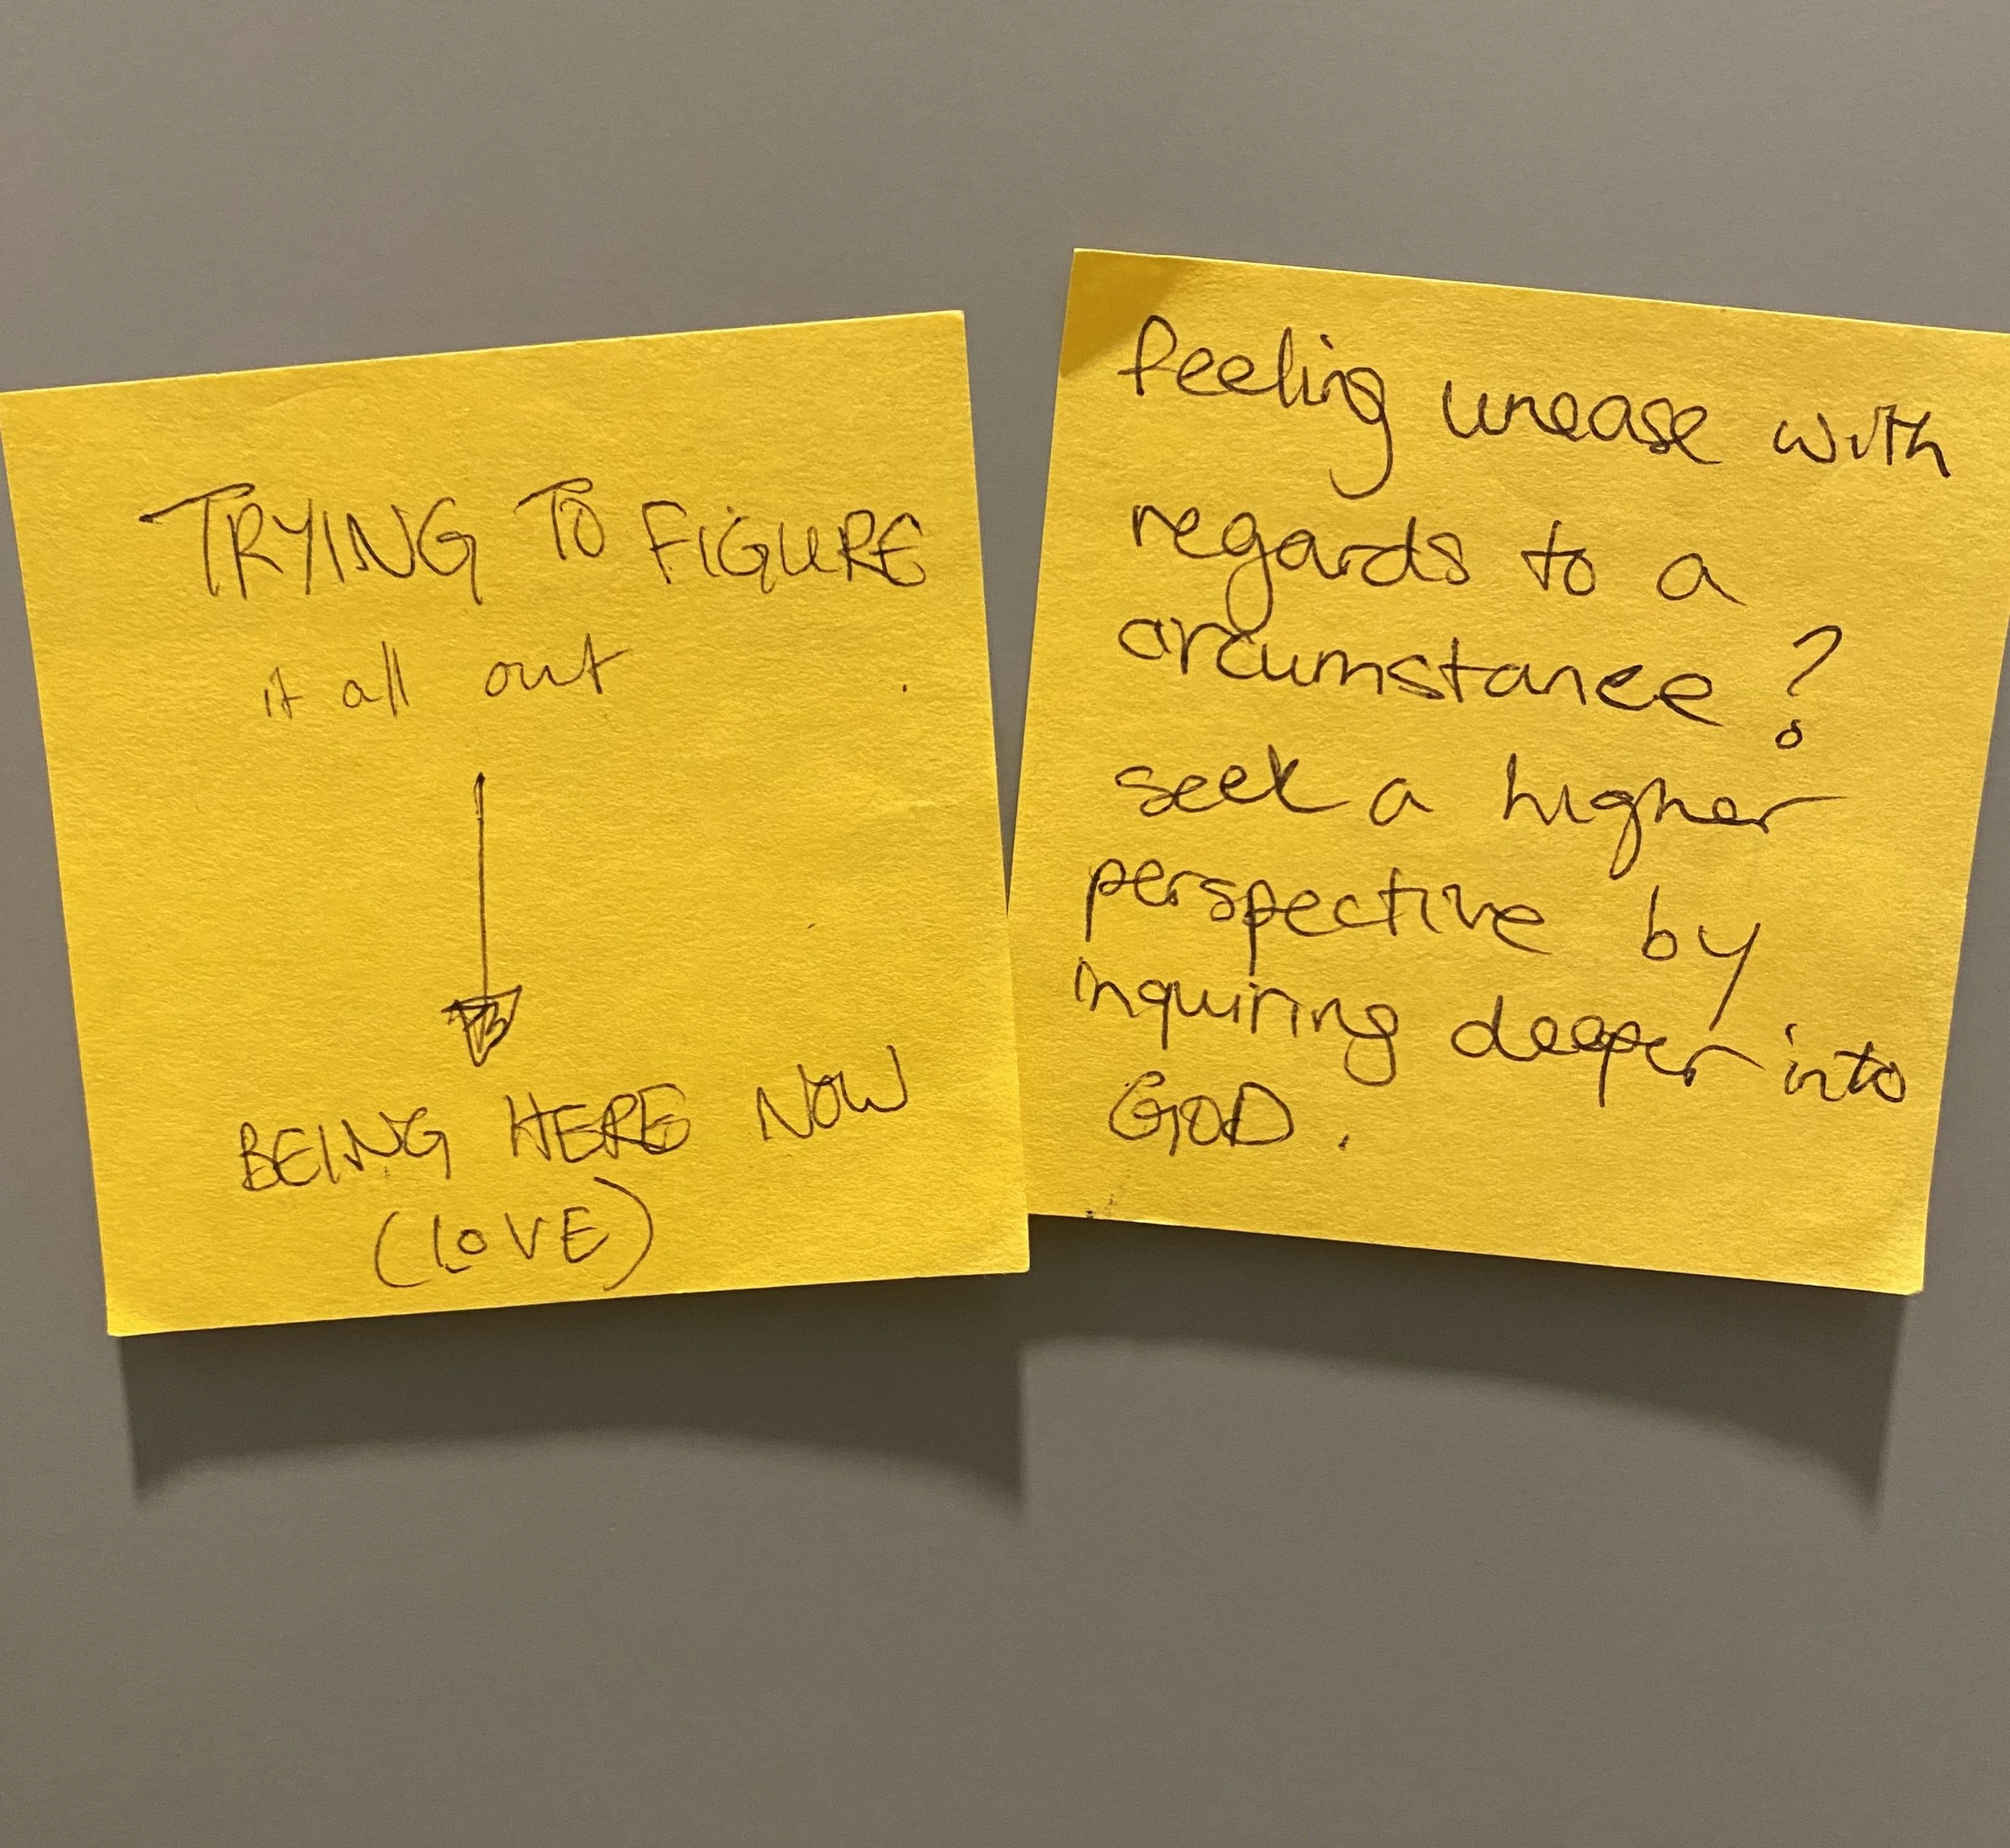 TRYING TO FIGURE
it all out
BEING HERE NOW
(LOVE)
feeling unease with
regards to a
circumstance?
seek a higher
perspective by
inquiring deeper into
GOD.